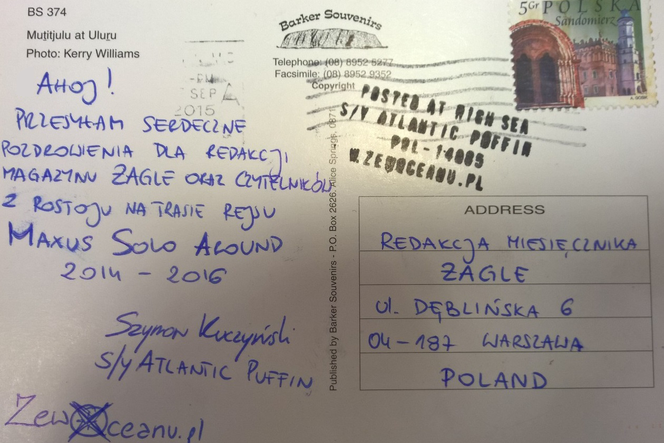 BS 374
Muṯitjulu at Uluru
Photo: Kerry Williams
Barker Souvenirs
Telephone: (08) 8952 5277
Facsimile: (08) 8952 9352
Copyright
SEP
2015
POLSKA
5Gr
Sandomierz
POSTED AT HIGH SEA
S/Y ATLANTIC PUFFIN
POL-14085
W.ZEWOCEANU.PL
AHOJ!
PRZESYŁAM SERDECZNE
POZDROWIENIA DLA REDAKCJI
MAGAZYNU ŻAGLE ORAZ CZYTELNIKÓW
Z POSTOJU NA TRASIE REJSU
MAXUS SOLO AROUND
2014 - 2016
Szymon Kuczyński
S/Y ATLANTIC PUFFIN
Zew ceanu.pl
Published by Barker Souvenirs - P.O. Box 2626, Alice Springs, 0871
ADDRESS
REDAKCJA MIESIĘCZNIKA
ŻAGLE
ul. DĘBLIŃSKA 6
04-187 WARSZAWA
POLAND